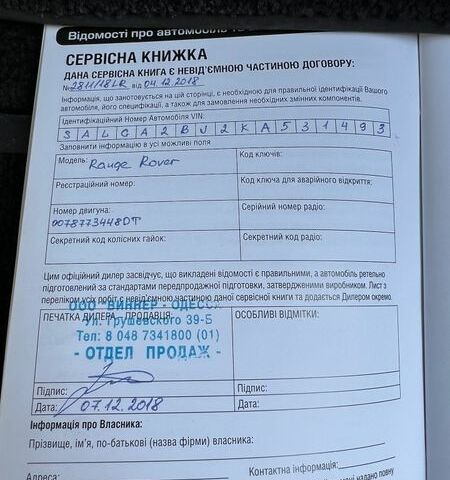 Відомості про автомобіль та
СЕРВІСНА КНИЖКА
ДАНА СЕРВІСНА КНИГА Є НЕВІД'ЄМНОЮ ЧАСТИНОЮ ДОГОВОРУ:
№ 2811/18LR від 04.12.2018
Інформація, що занотовується на цій сторінці, є необхідною для правильної ідентифікації Вашого
автомобіля, його специфікації, а також для замовлення необхідних змінних компонентів.
Ідентифікаційний Номер Автомобіля VIN:
S A L G A 2 B J 2 K A 5 3 1 4 9 3
Заповнити інформацію в усі можливі поля
Модель: Range Rover
Код ключів:
Реєстраційний номер:
Код ключа для аварійного відкриття:
Номер двигуна:
0078773448DT
Серійний номер радіо:
Секретний код колісних гайок:
Секретний код радіо:
Цим офіційний дилер засвідчує, що викладені відомості є правильними, а автомобіль ретельно
підготовлений за стандартами передпродажної підготовки, затвердженими виробником. Лист з
переліком усіх робіт є невід'ємною частиною даної сервісної книги та додається Дилером окремо.
ООО "ВИННЕР - ОДЕССА
ПЕЧАТКА ДИЛЕРА - ПРОДАВЦЯ:
ОСОБЛИВІ ВІДМІТКИ:
Ул. Грушевского 39-Б
Тел: 8 048 7341800 (01)
- ОТДЕЛ ПРОДАЖ -
Підпис:
Підпис:
Дата: 07.12.2018
Дата:
Інформація про Власника:
Прізвище, ім'я, по-батькові (назва фірми) власника:
Контактна інформація:
Адреса:
надану повну